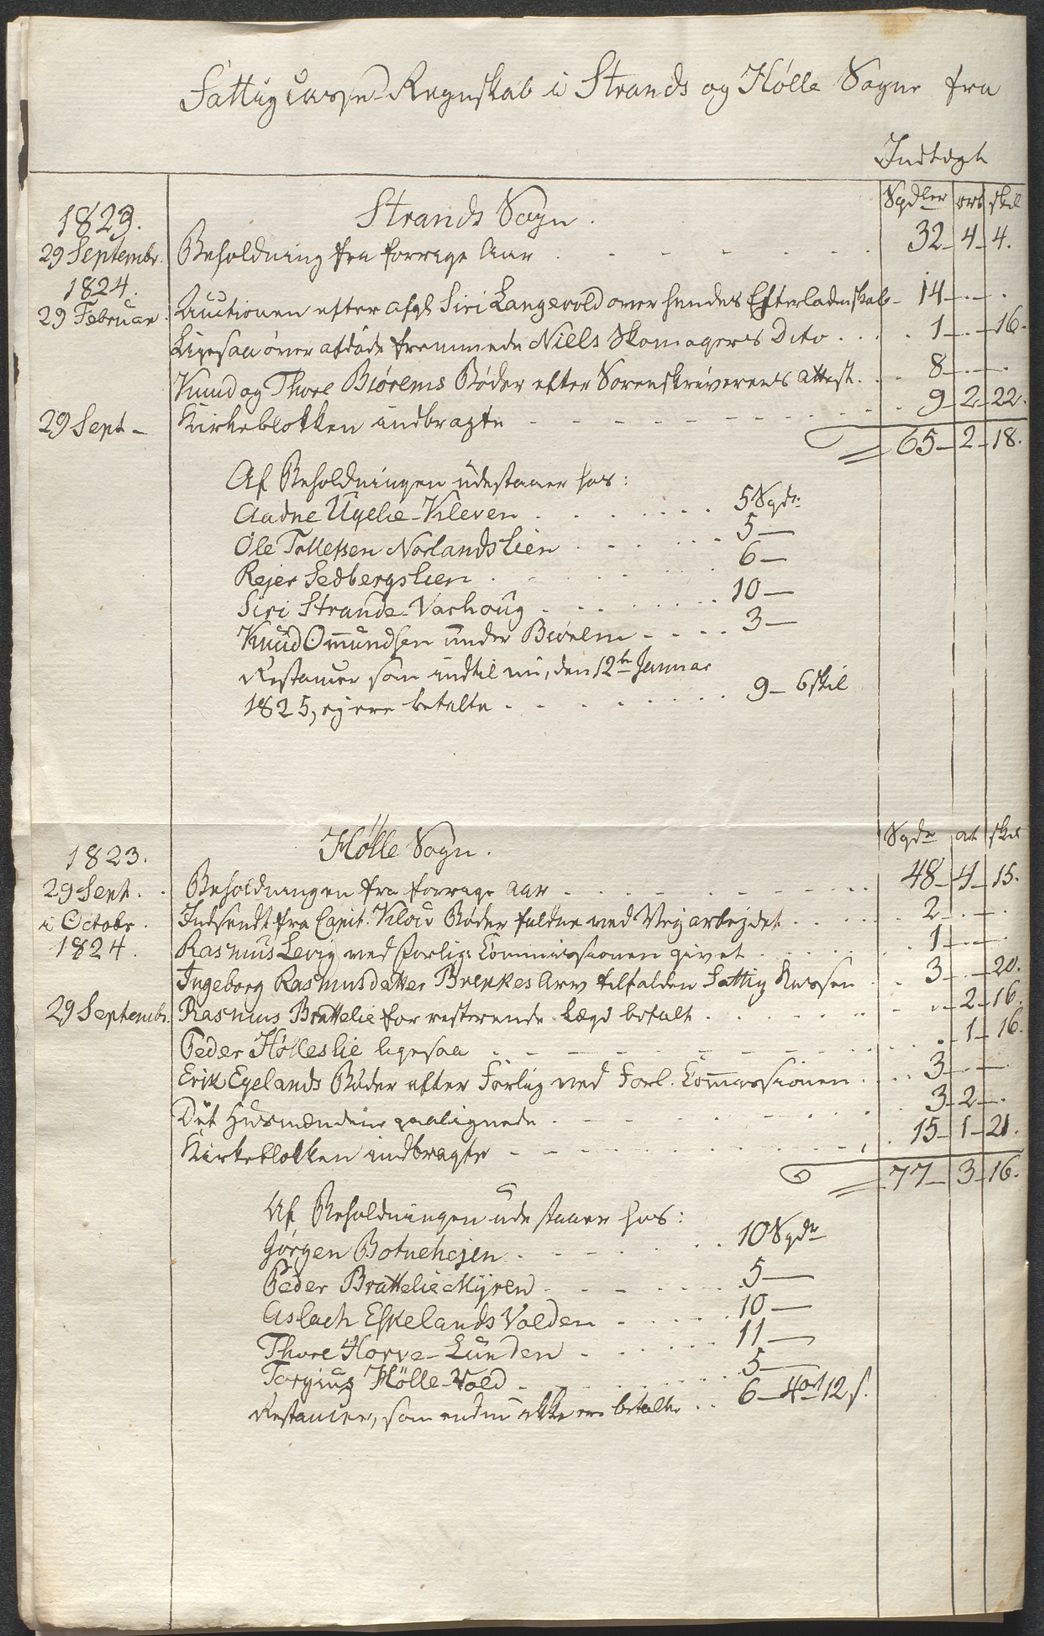 Fattigcasse-Regnskab i Strands og Hølle Sogne fra
Indtægt
Spdler ort skil
1823. Strands Sogn.
29 Septembr. Beholdning fra forrige Aar . - - - - - 32 - 4 - 4.
1824.
29 Februar. Auctionen efter afgl. Siri Langevold over hendes Efterladenskab - 14 - . - .
Ligesaa over afdøde fremmede Niels Skomagers Dito . . . . 1 - . - 16.
Knud og Thore Biørems Bøder efter Sorenskriverens Attest . . . 8 - . - .
29 Sept - Kirkeblokken indbragte - - - - - - - . . . 9 - 2 - 22.
65 - 2 - 18.
Af Beholdningen udestaaer hos:
Aadne Ugelie-Kleven . . . . . . . 5 Spdr
Ole Tollefsen Norlandslien . . . . - 5 -
Rejer Sedbergslien . - - - - - . 6 -
Siri Strande-Varhoug . . . . . . . 10 -
Knud Omundsen under Biørelm - - - - 3 -
Restancer som indtil nu, den 12te Januar
1825, ej ere betalte . - - - - - . . 9 - 6 skil
Spdr ort skil
1823. Hølle Sogn.
29 Sept. . . Beholdningen fra forrige Aar - - - - - - - - . . 48 - 4 - 15.
i Octobr. Indsendt fra Capit. Kloud Bøder faldne ved Vejarbejdet . . . . 2 - . - .
1824. Rasmus Levig ved Forligs Commissionen givet . . . . . . 1 - . - .
Ingeborg Rasmusdatter Brekkes Arv tilfalden Fattig Kassen . . 3 - . - 20.
29 Septembr. Rasmus Brattelie for resterende Lægd betalt . . . . . . . . - 2 - 16.
Peder Hølleslie ligesaa - - - - - - - - - . . . . - 1 - 16.
Erik Egelands Bøder efter Forlig ved Forl. Commissionen . . . 3 - . - .
Det Husmændene paalignede . - - - - - - - . . . 3 - 2 - .
Kirkeblokken indbragte - - - - - - - - - . . 15 - 1 - 21.
77 - 3 - 16.
Af Beholdningen udestaaer hos:
Jørgen Botnehejen . - - - - - . . 10 Spdr
Peder Brattelie Myren - - - - - . . 5 -
Aslach Eskelands Volden - - - - . . 10 -
Thore Horve-Lunden - . . . . . . 11 -
Torgius Hølle-Vold . - - - - - - . 5 -
Restancer, som endnu ikke ere betalte . . 6 - 4 ort 12 s.